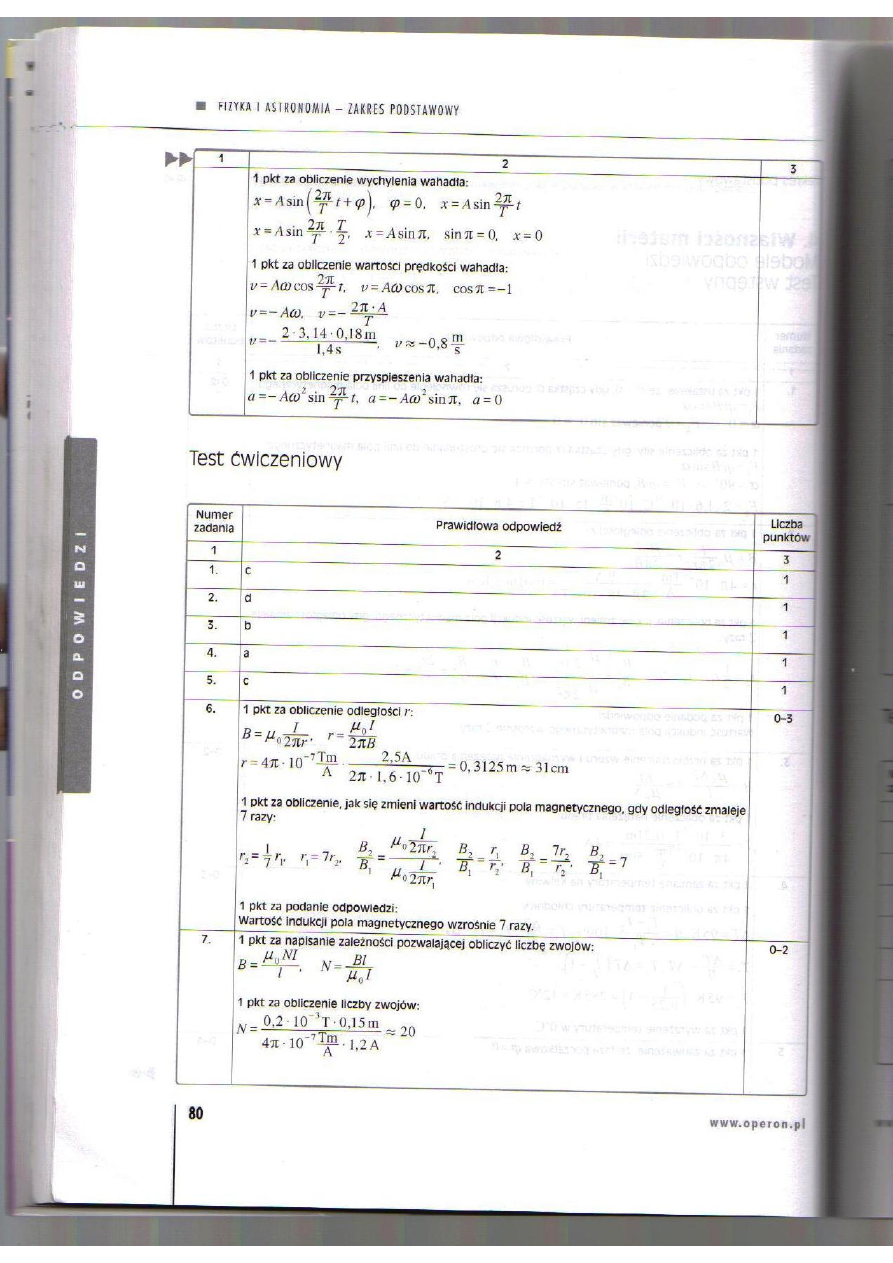 FIZYKA I ASTRONOMIA – ZAKRES PODSTAWOWY
1 2 3
1 pkt za obliczenie wychylenia wahadła:
x = A sin (2π/T t + φ), φ = 0, x = A sin 2π/T t
x = A sin 2π/T · T/2, x = A sin π, sin π = 0, x = 0
1 pkt za obliczenie wartości prędkości wahadła:
v = Aω cos 2π/T t, v = Aω cos π, cos π = −1
v = − Aω, v = − 2π · A/T
v = − 2 · 3,14 · 0,18 m/1,4 s, v ≈ −0,8 m/s
1 pkt za obliczenie przyspieszenia wahadła:
a = − Aω² sin 2π/T t, a = − Aω² sin π, a = 0
Test ćwiczeniowy
Numer zadania Prawidłowa odpowiedź Liczba punktów
1 2 3
1. c 1
2. d 1
3. b 1
4. a 1
5. c 1
6. 1 pkt za obliczenie odległości r: 0–3
B = μ₀ I/2πr, r = μ₀I/2πB
r = 4π · 10⁻⁷ Tm/A · 2,5A/2π · 1,6 · 10⁻⁶T = 0,3125 m ≈ 31cm
1 pkt za obliczenie, jak się zmieni wartość indukcji pola magnetycznego, gdy odległość zmaleje
7 razy:
r₂ = 1/7 r₁, r₁ = 7r₂, B₂/B₁ = μ₀ I/2πr₂ / μ₀ I/2πr₁, B₂/B₁ = r₁/r₂, B₂/B₁ = 7r₂/r₂, B₂/B₁ = 7
1 pkt za podanie odpowiedzi:
Wartość indukcji pola magnetycznego wzrośnie 7 razy.
7. 1 pkt za napisanie zależności pozwalającej obliczyć liczbę zwojów: 0–2
B = μ₀NI/l, N = Bl/μ₀I
1 pkt za obliczenie liczby zwojów:
N = 0,2 · 10⁻³T · 0,15 m/4π · 10⁻⁷ Tm/A · 1,2 A ≈ 20
ODPOWIEDZI
80
www.operon.pl